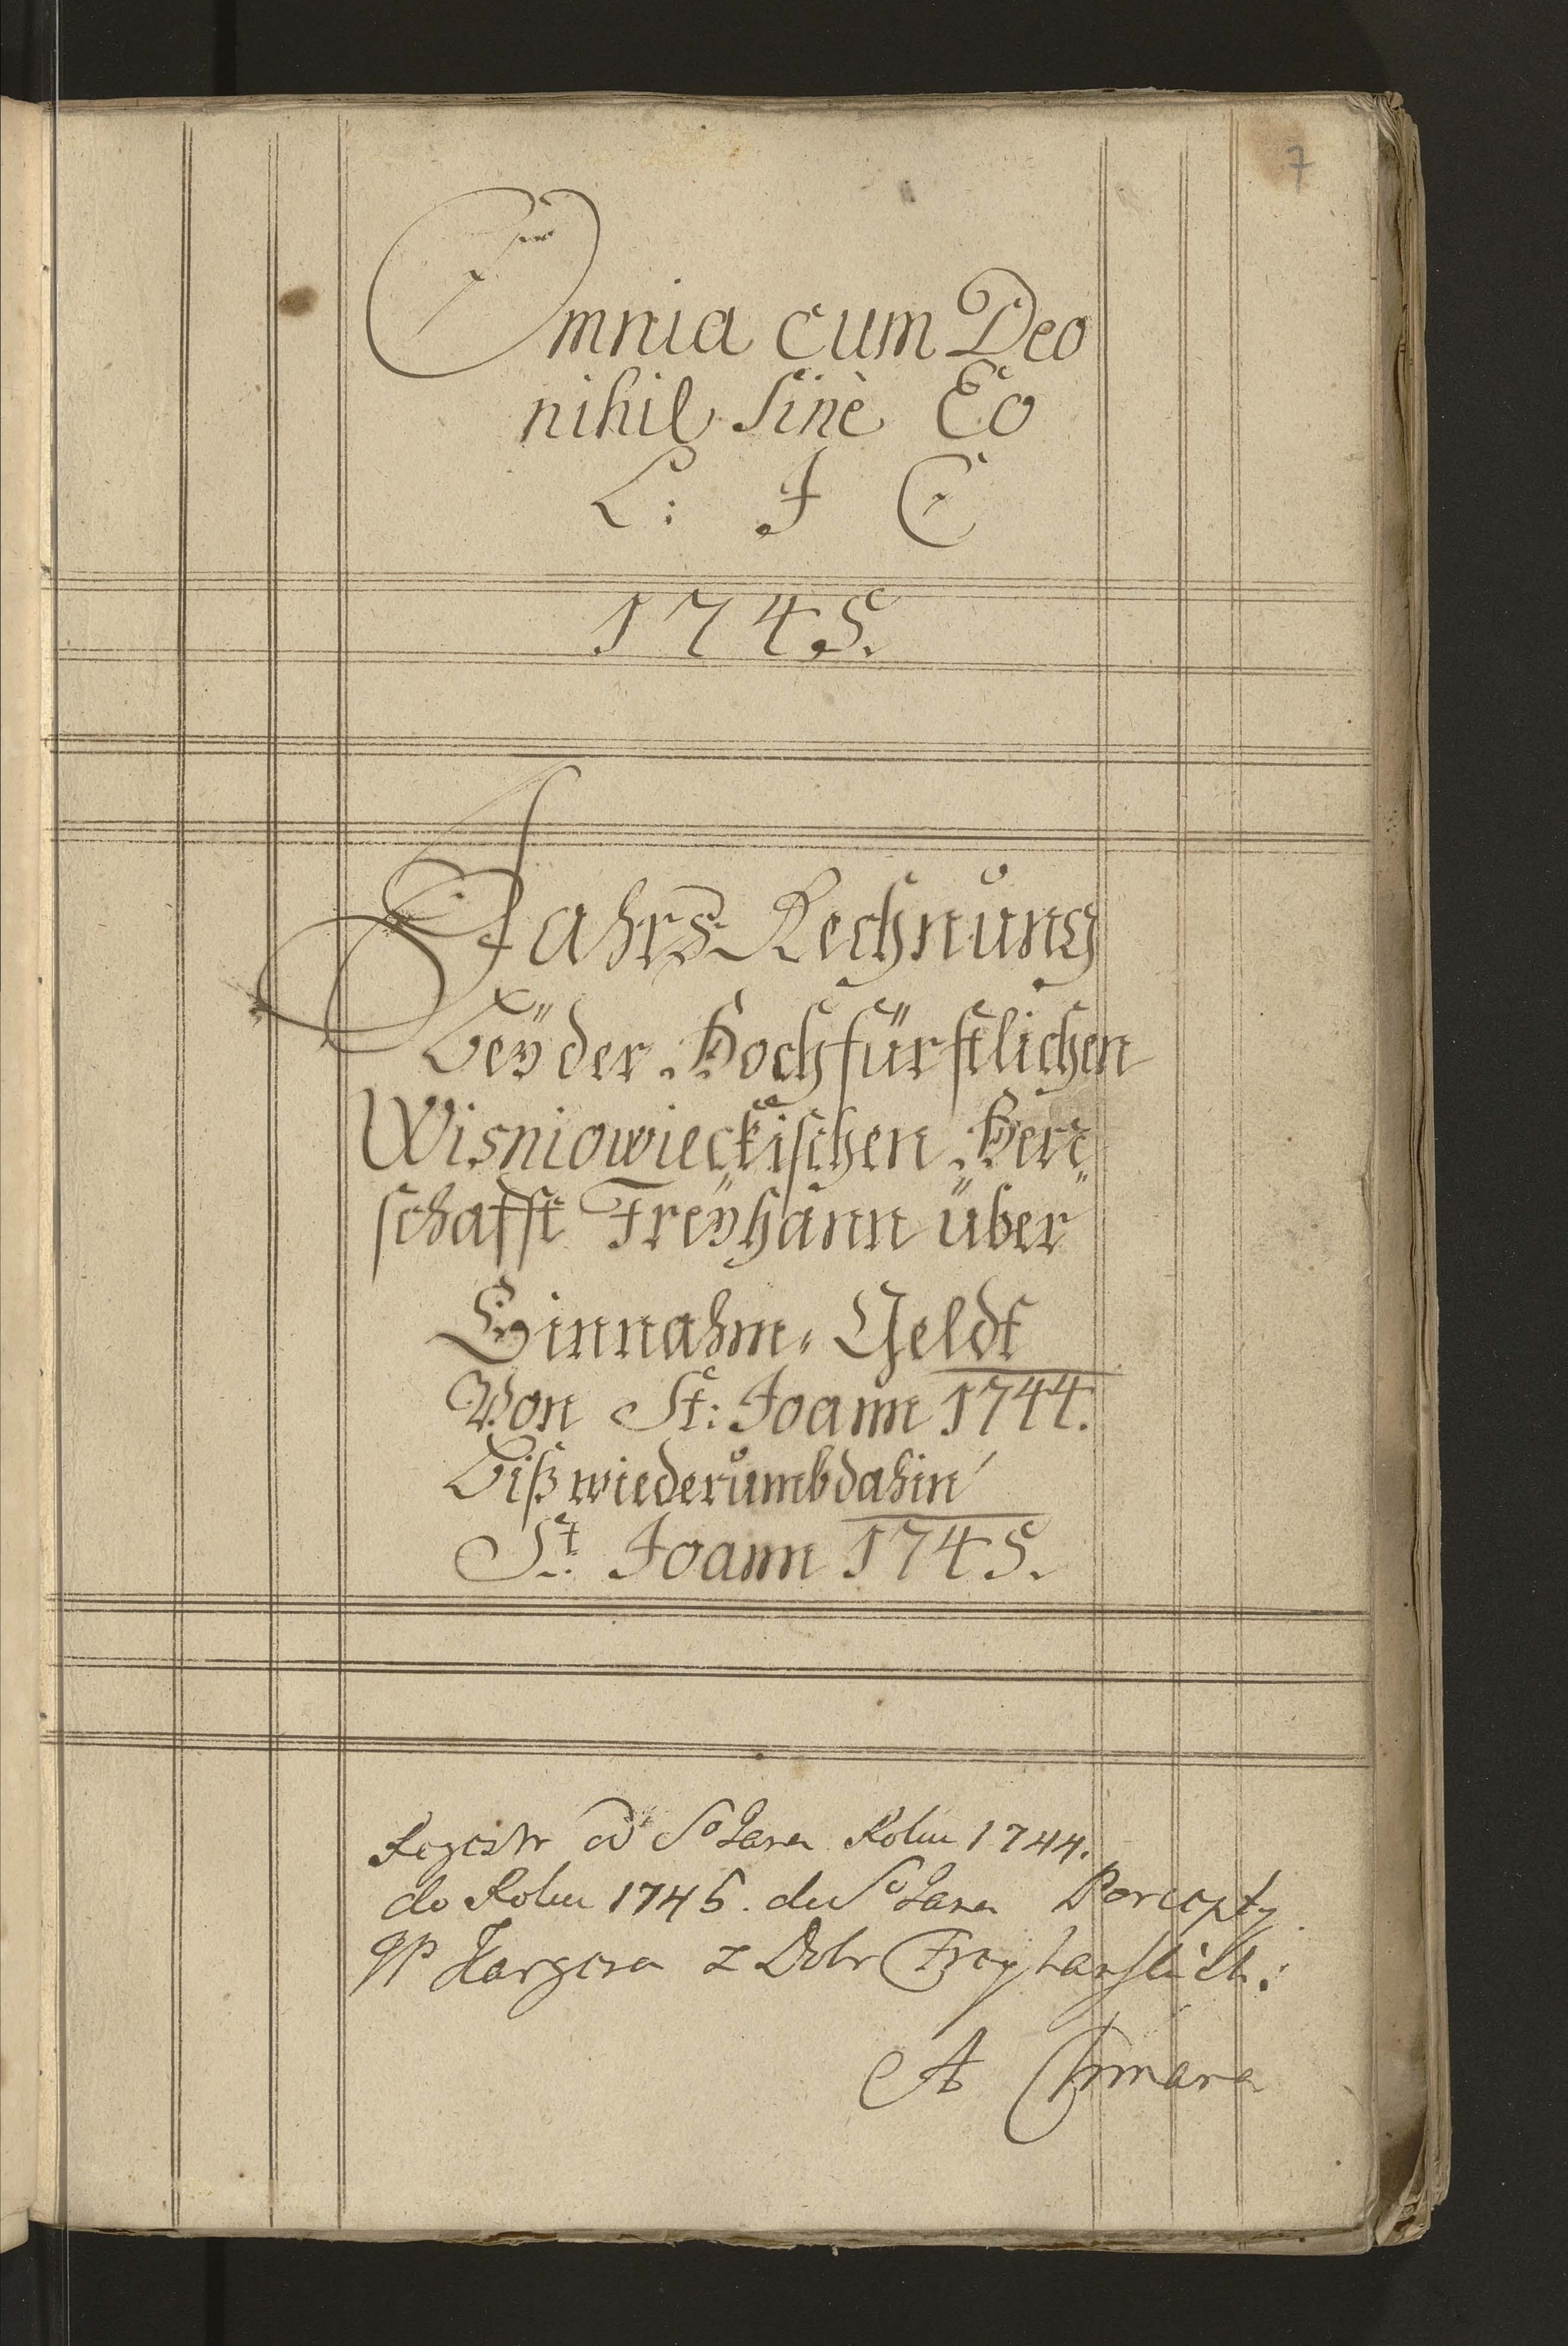 7
Omnia cum Deo
nihil sinè Eo
L: J C
1745.
Jahrs Rechnung
Beÿder Hochfürstlichen
Wisniowieckischen Herr
schafft Freÿhann über
Einnahm Geldt
Von St: Joann 1744.
Biß wiederumb dahin
St. Joann 1745.
Regestr od So Jana Roku 1744.
do Roku 1745. du So Jana Percepty
z Dobr
A